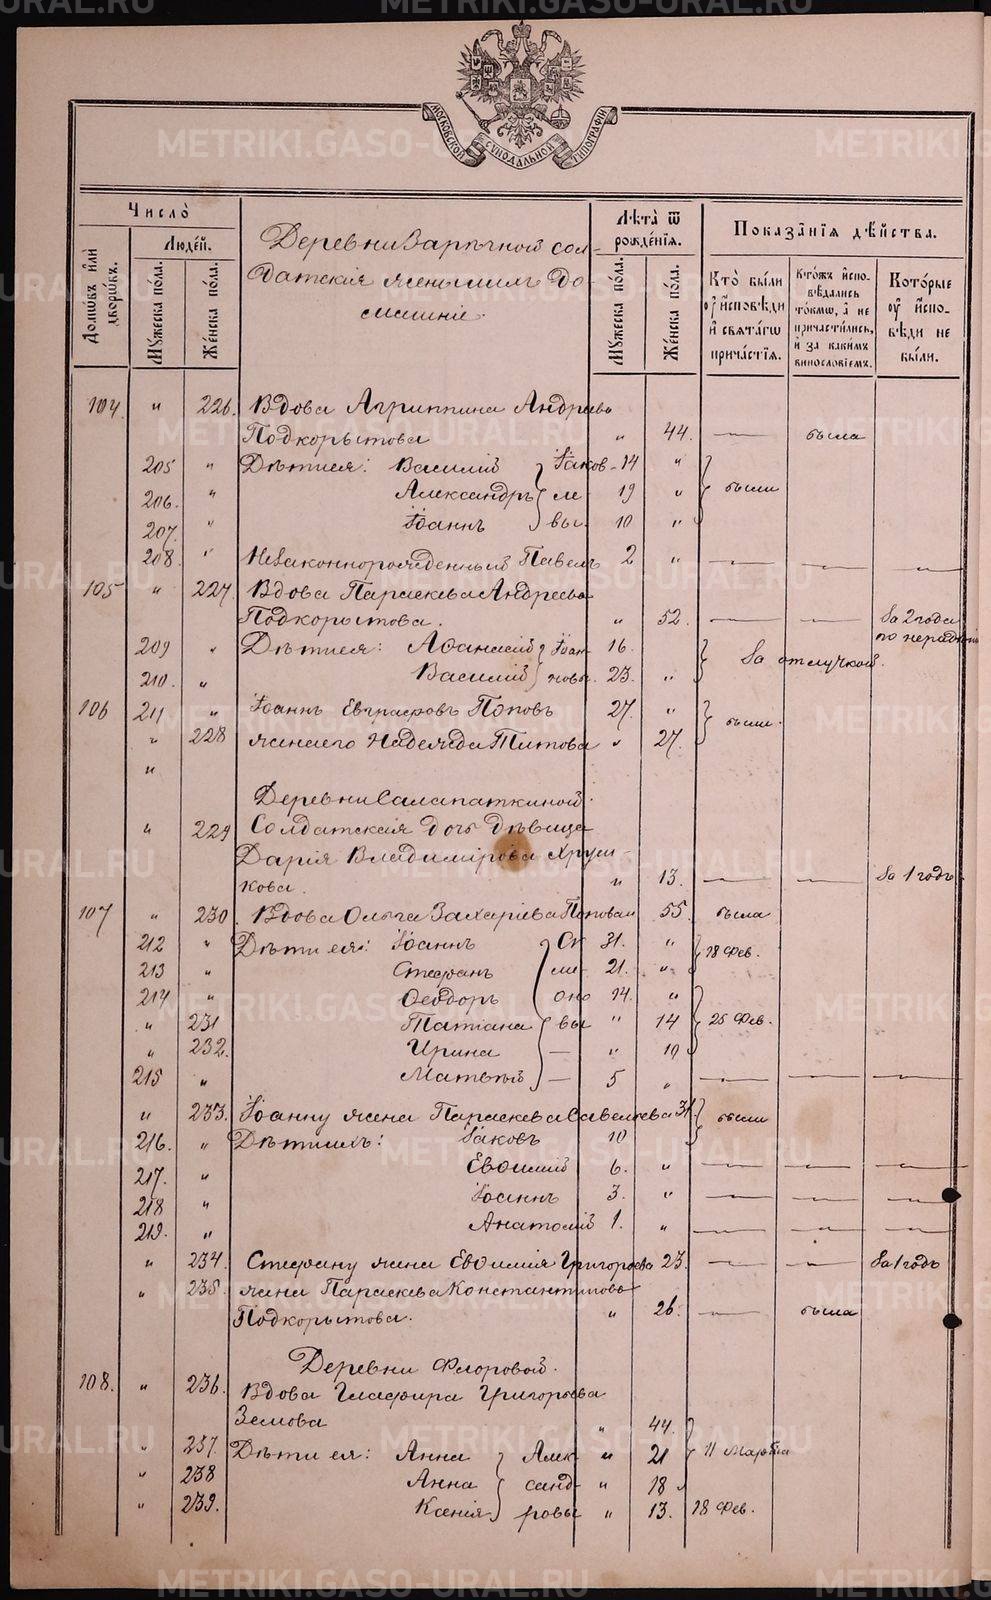 METRIKI.GASO-URAL.RU
МОСКОВСКОЙ СѴНОДАЛЬНОЙ ТИПОГРАФІИ
Число̀
Домѡвъ и҆лѝ дворѡвъ.
Люде́й.
Мꙋ́жеска по́ла.
Же́нска по́ла.
Деревни Заречной сол-
датскія жены и ихъ до-
машніе.
Лѣта̀ ѿ рожде́нїѧ.
Мꙋ́жеска по́ла.
Же́нска по́ла.
Показа̑нїѧ дѣ́йства.
Кто̀ бы́ли ᲂу҆ и҆сповѣ́ди и҆ свѧта́гѡ прича́стїѧ.
Кто́жъ и҆спо- вѣ́дались то́кмѡ, а҆ не причасти́лись, и҆ за каки́мъ винослові́емъ.
Кото́рые ᲂу҆ и҆спо- вѣ́ди не бы́ли.
104. " 226. Вдова Агриппина Андреева
Подкорытова " 44. — была
205 " Дѣти ея: Василій Іаков- 14 "
206. " Александръ ле- 19 " были
207. " Іоаннъ вы. 10 "
208. " Незаконнорожденный Павелъ 2 " — — —
105 " 227. Вдова Параскева Андреева
Подкорытова. " 52. — — За 2 года
по нераденію
209 " Дѣти ея: Аѳанасій Іоан- 16.
210. " Василій новы. 23. " За отлучкой.
106 211 " Іоаннъ Евграфовъ Поповъ 27. "
" 228 жена его Надежда Титова " 27. были.
"
Деревни Салапаткиной.
" 229 Солдатская дочь дѣвица
Дарія Владимірова Хруш-
кова. " 13. — — За 1 годъ.
107 " 230. Вдова Ольга Захаріева Попова " 55. была
212 " Дѣти ея: Іоаннъ Си 31. "
213 " Стефанъ ме- 21. " 18 Фев.
214 " Ѳеодоръ оно 14. "
" 231 Татіана вы " 14 25 Фев.
" 232. Ирина — " 10
215 " Матвѣй — 5 " — — —
" 233. Іоанну жена Параскева Савельева 31 были
216. " Дѣти ихъ: Іаковъ 10
217. " Евѳимій 6. " — — —
218 " Іоаннъ 3. " — — —
219. " Анатолій 1. " — — —
" 234. Стефану жена Евѳимія Григорьева 23. — — За 1 годъ
" 235. жена Параскева Константинова
Подкорытова. " 26. — была
Деревни Флоровой.
108. " 236. Вдова Глафира Григорьева
Земова " 44.
" 237. Дѣти ея: Анна Алек- " 21 11 Марта
" 238 Анна санд- " 18
" 239. Ксенія ровы " 13. 18 Фев.